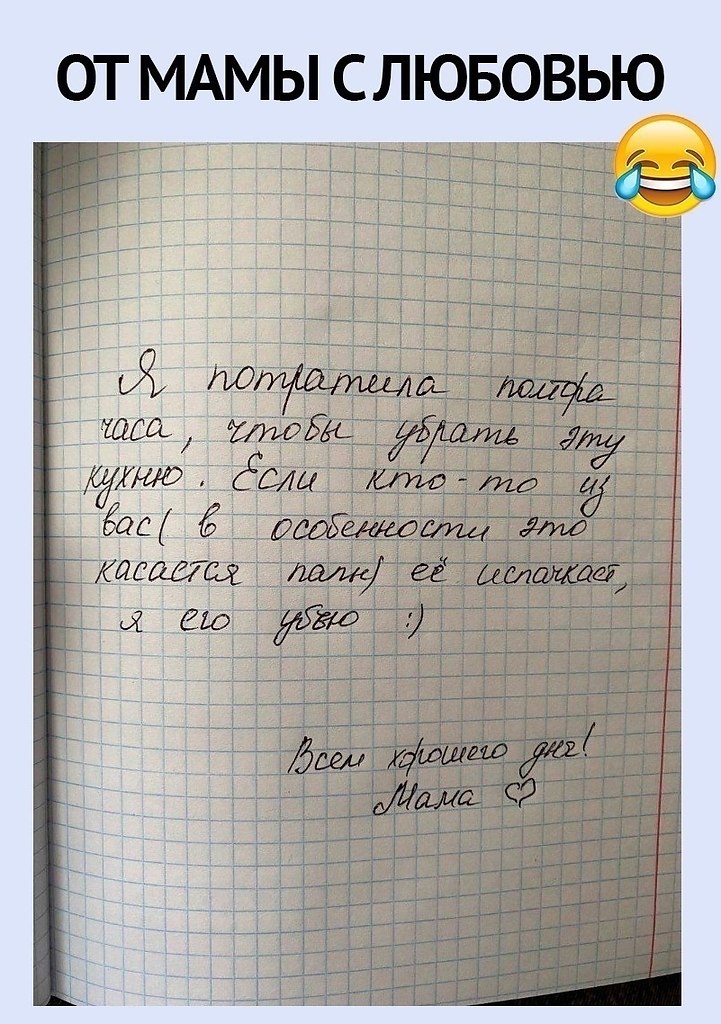 ОТ МАМЫ С ЛЮБОВЬЮ
Я потратила полтора
часа, чтобы убрать эту
кухню. Если кто-то из
вас (в особенности это
касается папы) её испачкает,
я его убью :)
Всем хорошего дня!
Мама ♡